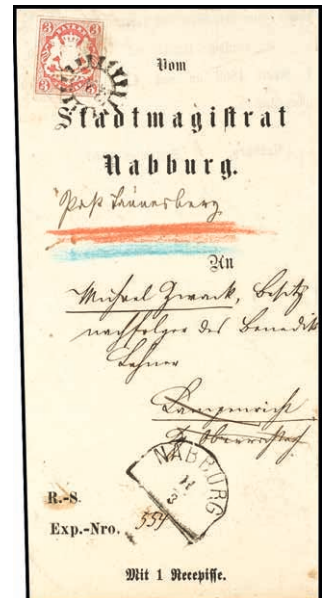 3 BAYERN 3
Vom
Stadtmagistrat
Nabburg.
Post Tännesberg
An
Michael Zwack, Besitz
nachfolger des Benedikt
Lehner
Kampenricht
NABBURG
11
3
R.-S.
Exp.-Nro. 554
Mit 1 Recepisse.